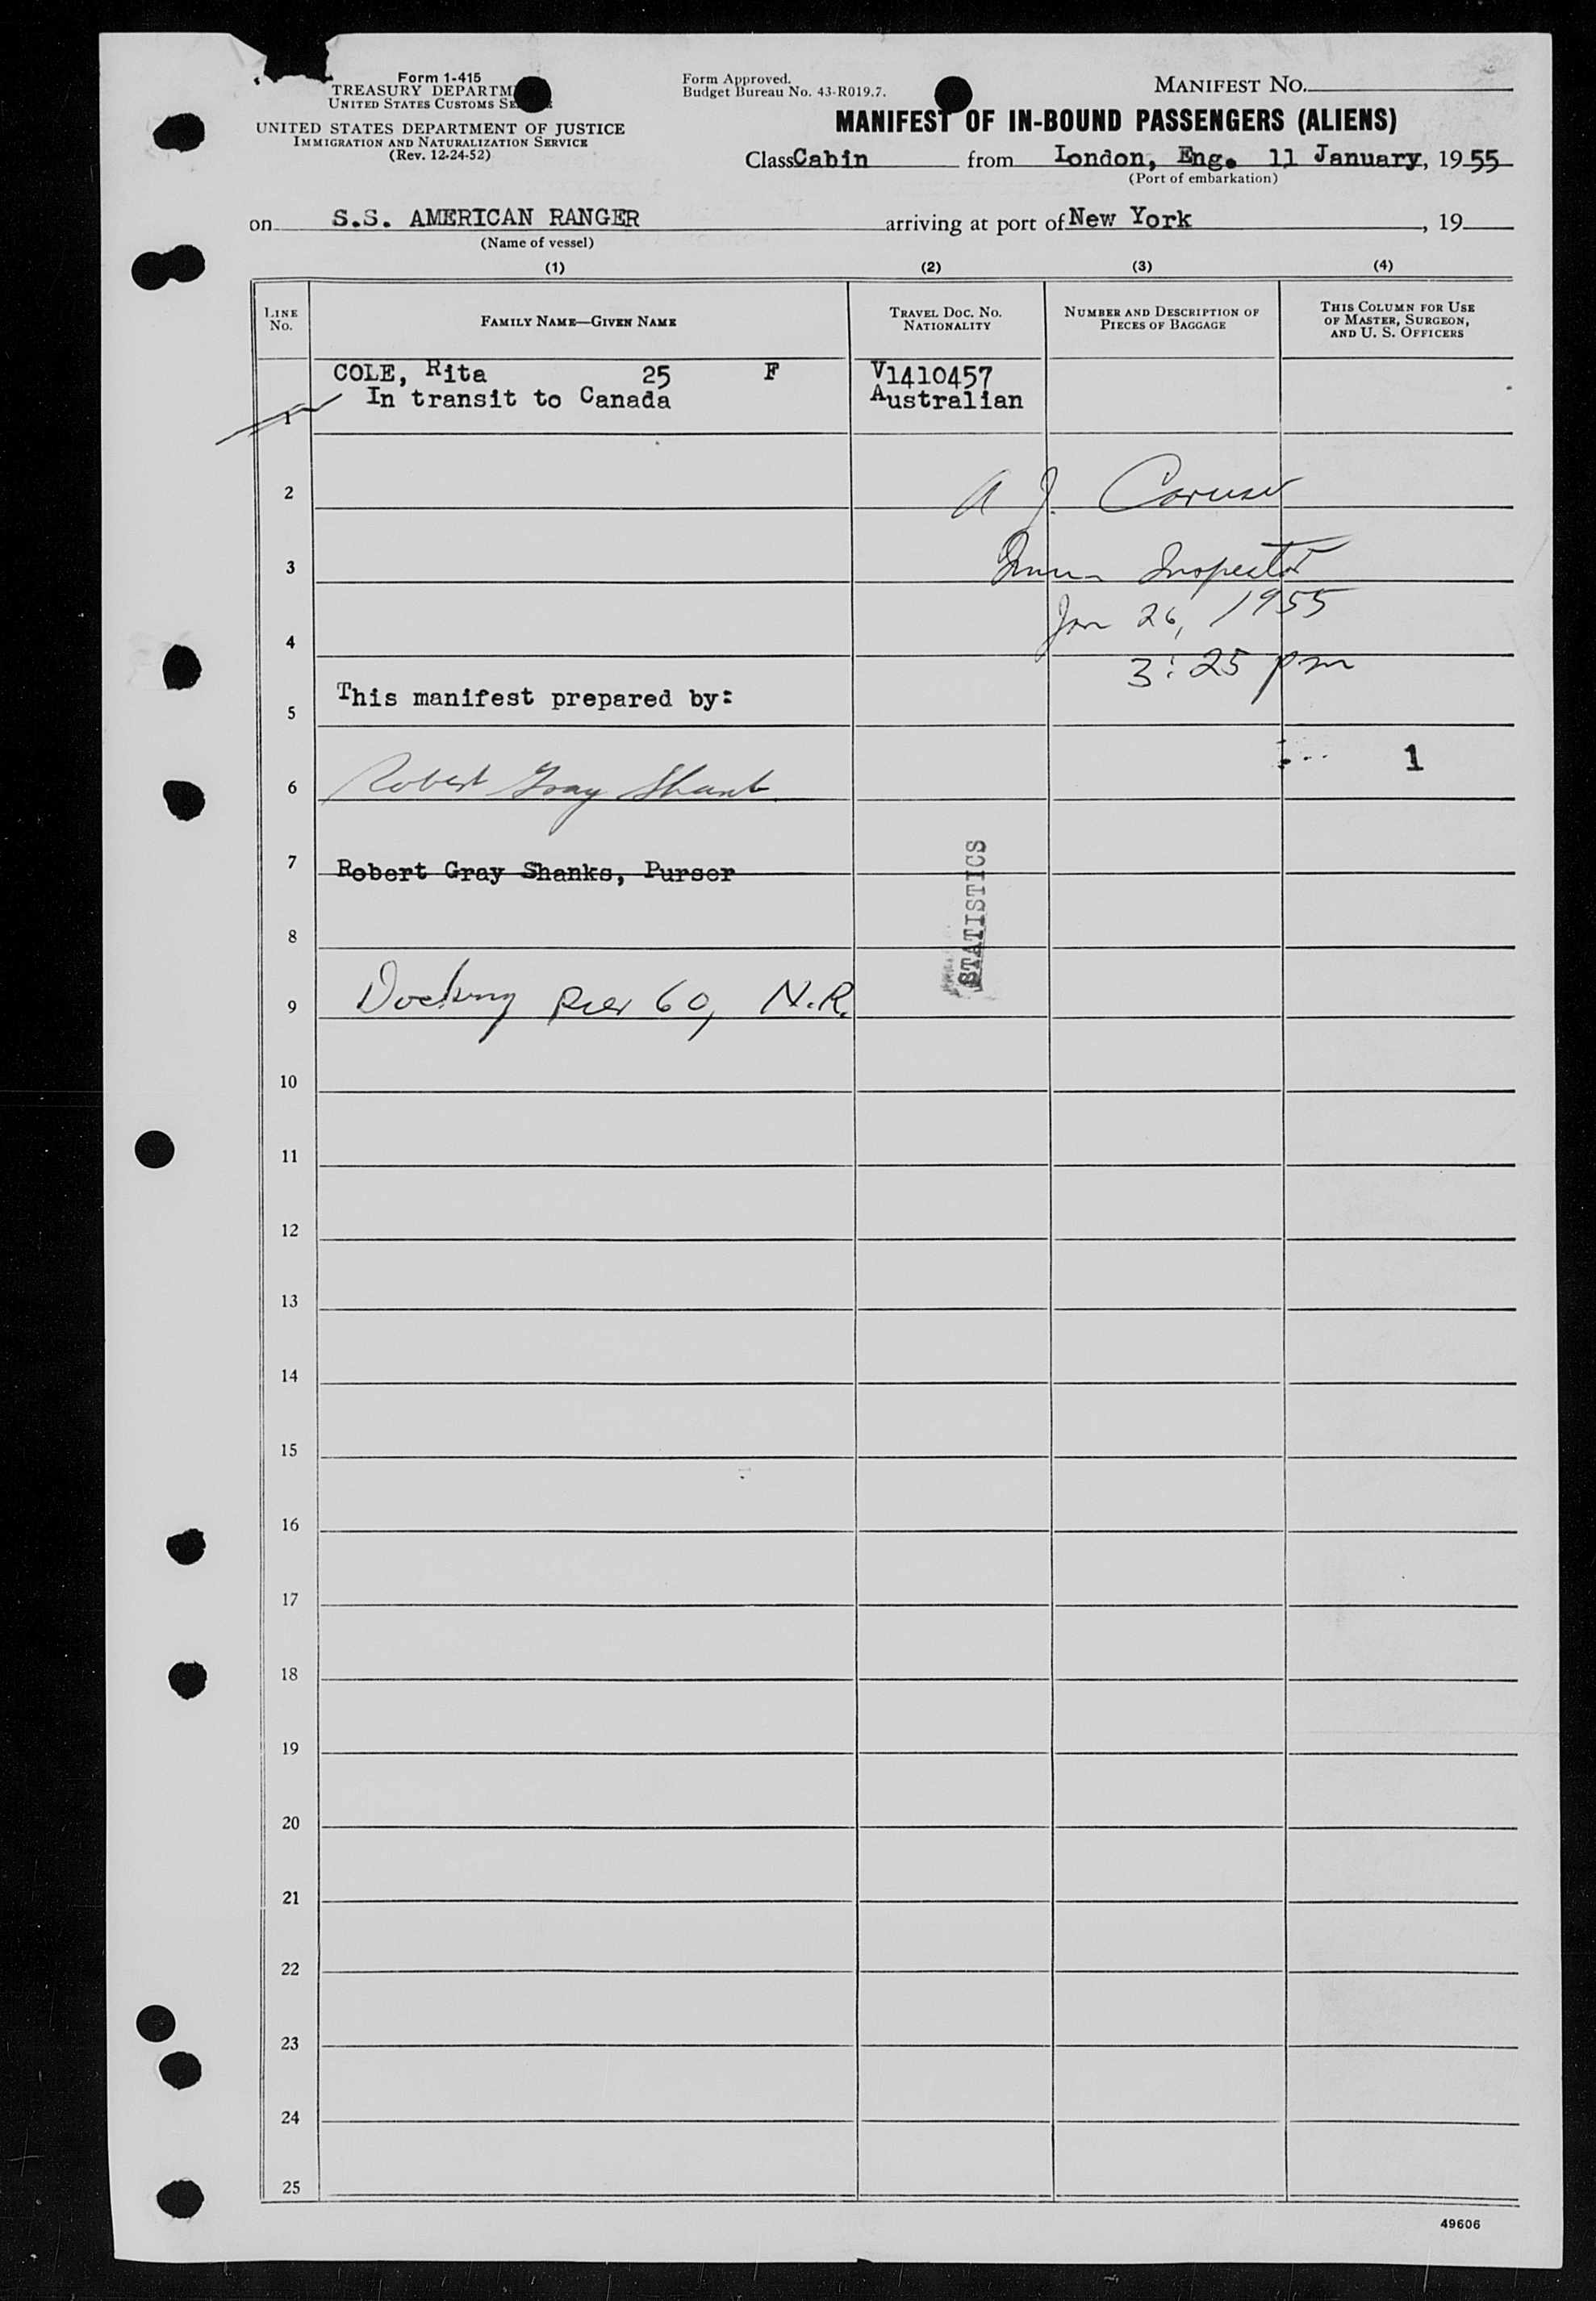 Form 1-415
TREASURY DEPARTM
UNITED STATES CUSTOMS SE
UNITED STATES DEPARTMENT OF JUSTICE
IMMIGRATION AND NATURALIZATION SERVICE
(Rev. 12-24-52)
Form Approved.
Budget Bureau No. 43-R019.7.
MANIFEST NO.
MANIFEST OF IN-BOUND PASSENGERS (ALIENS)
Class Cabin from London, Eng. 11 January, 1955
(Port of embarkation)
on S.S. AMERICAN RANGER arriving at port of New York, 19
(Name of vessel)
(1) (2) (3) (4)
LINE NO. FAMILY NAME—GIVEN NAME TRAVEL DOC. NO. NATIONALITY NUMBER AND DESCRIPTION OF PIECES OF BAGGAGE THIS COLUMN FOR USE OF MASTER, SURGEON, AND U. S. OFFICERS
COLE, Rita 25 F V1410457
1 In transit to Canada Australian
2 A J. Caruso
3 Immn Inspector
Jan 26, 1955
4
3:25 pm
5 This manifest prepared by:
1
6 Robert Gray Shanks
7 Robert Gray Shanks, Purser
STATISTICS
8
9 Docking Pier 60, N.R.
10
11
12
13
14
15
16
17
18
19
20
21
22
23
24
25
49606